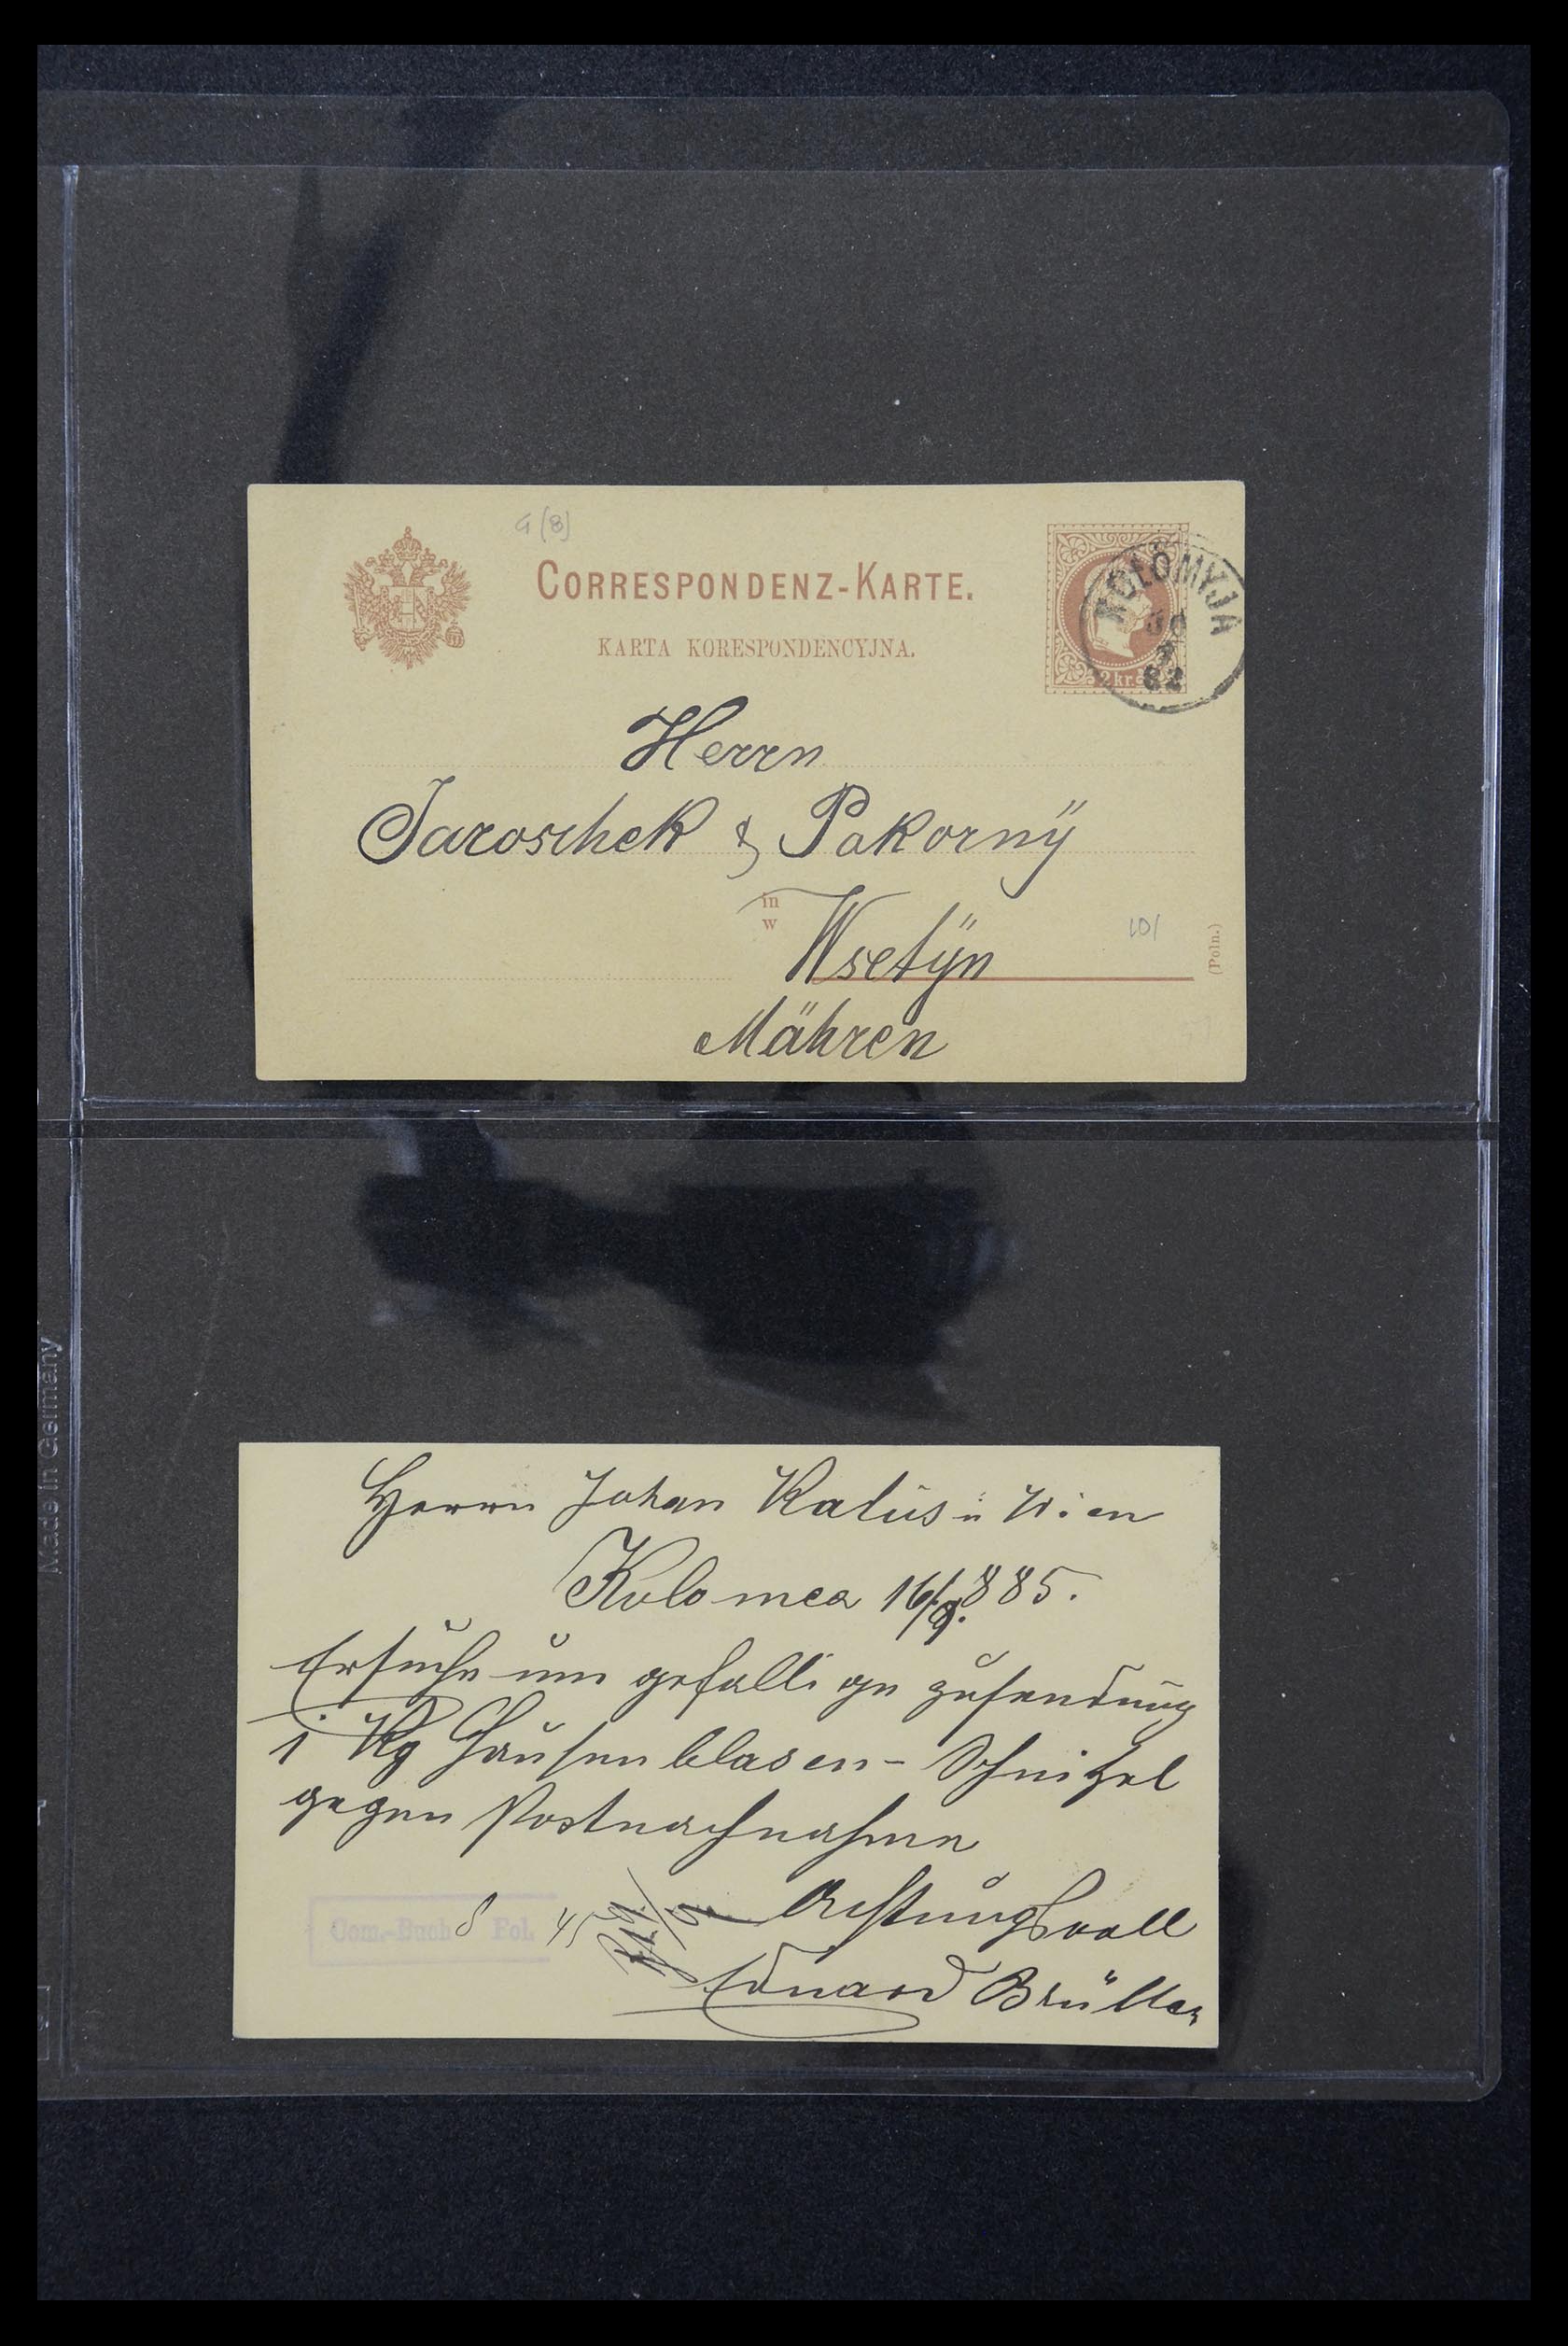 G (8)
CORRESPONDENZ-KARTE.
KARTA KORESPONDENCYJNA.
KOŁOMYJA
30
82
2 kr.
Herrn
Jaroschek & Pokornÿ
in
w
Wsetÿn
Mähren
(Poln.)
Made in Germany
Herrn Johan Katus in Wien
Kolomea 16/9. 885.
Ersuche um gefällige zusendung
1 Kg Hausenblasen-Schnitzel
gegen Postnachnahme
Achtungsvoll
Com.-Buch 8 Fol. 45
Eduard Brüller